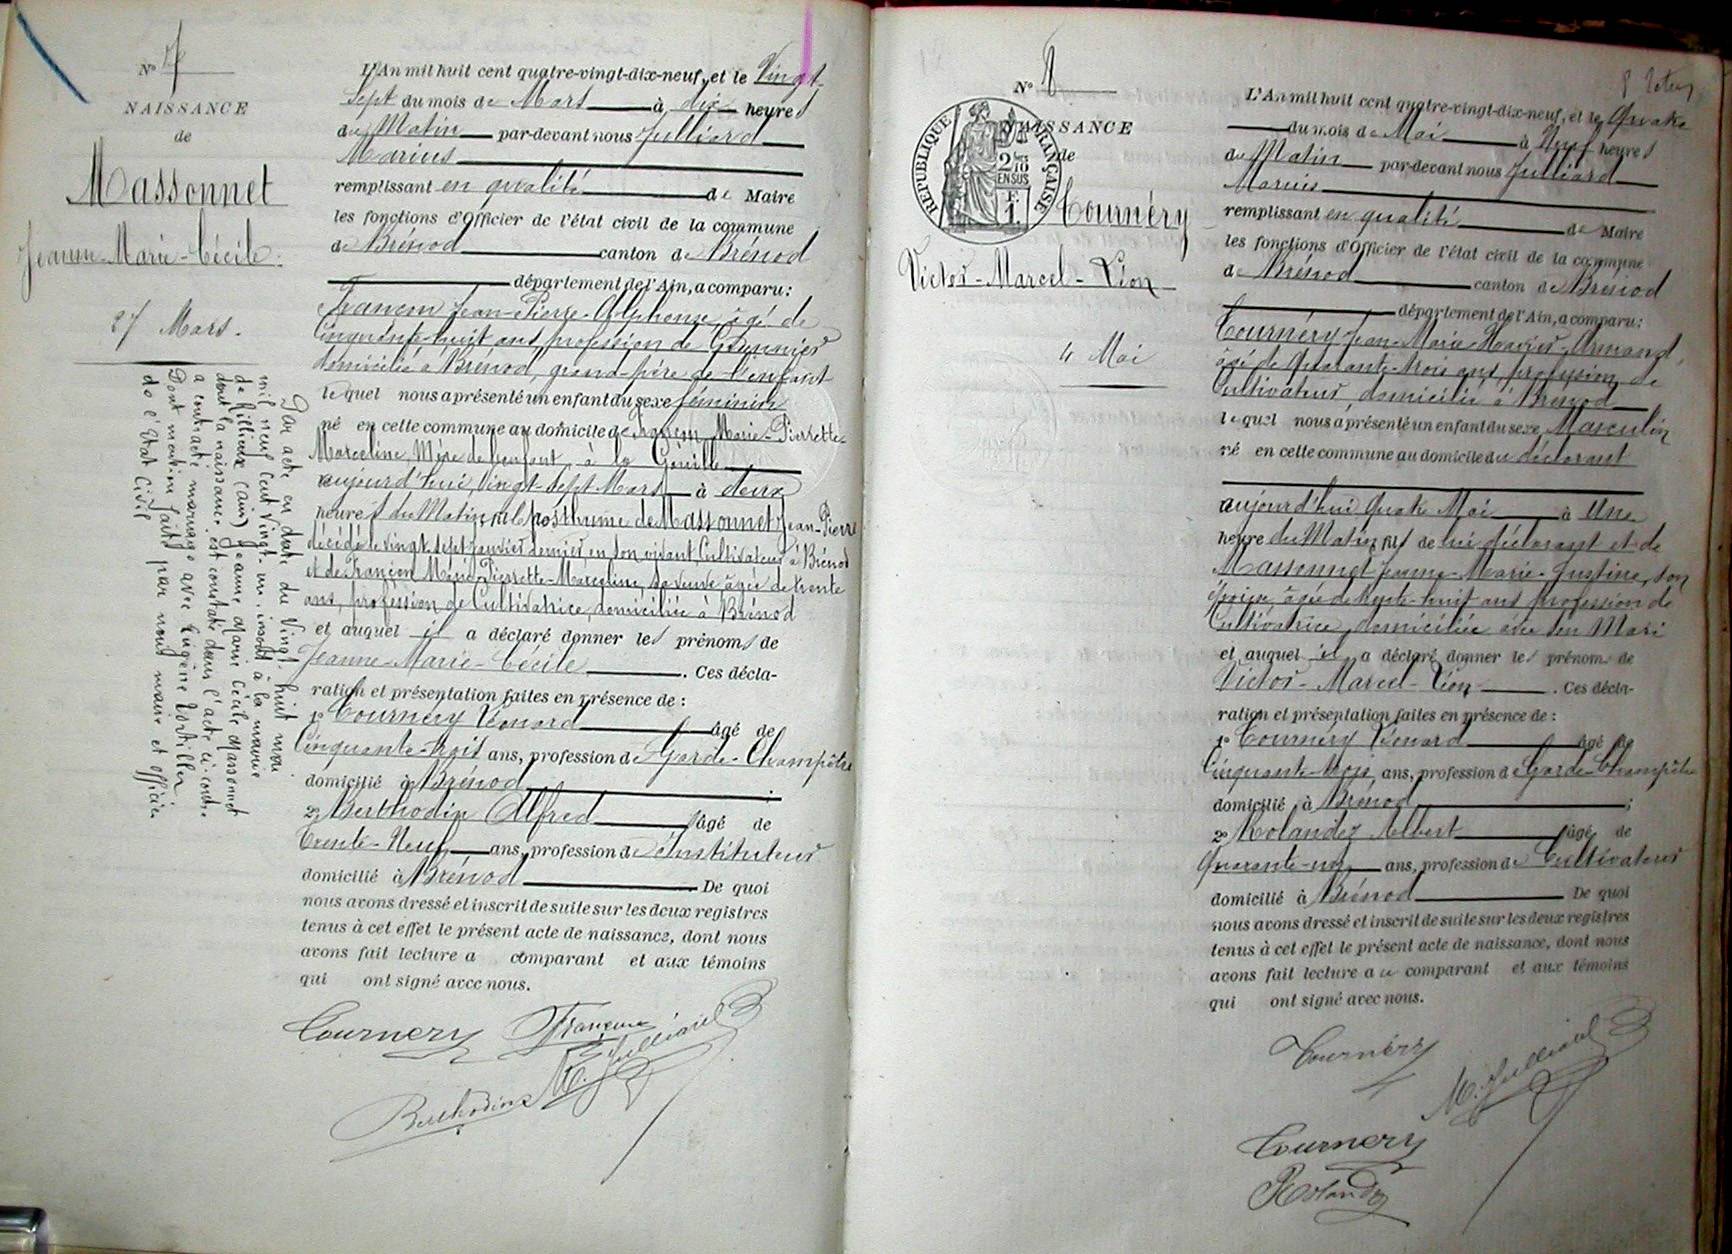 N° 7
NAISSANCE
de
Massonnet
Jeanne-Marie-Cécile.
27 Mars.
Par acte en date du Vingt huit mai
mil neuf cent vingt-un, inscrit à la mairie
de Rillieux (Ain) Jeanne Marie Cécile Massonnet
dont la naissance est constatée dans l'acte ci-contre
a contracté mariage avec Eugène
Dont mention faite par nous maire et officier
de l'Etat Civil
L'An mil huit cent quatre-vingt-dix-neuf, et le Vingt-
Sept du mois de Mars à dix heures
du Matin par-devant nous Julliard
Marius
remplissant en qualité de Maire
les fonctions d'Officier de l'état civil de la commune
de Brénod canton de Brénod
département de l'Ain, a comparu :
Françon Jean-Pierre-Alphonse âgé de
Cinquante-huit ans, profession de
domicilié à Brénod, grand-père de l'enfant
lequel nous a présenté un enfant du sexe féminin
né en cette commune au domicile de Françon Marie-Pierrette-
Marceline, Mère de l'enfant, à la
aujourd'hui, Vingt-Sept Mars à deux
heures du Matin, fille posthume de Massonnet Jean-Pierre
décédé le vingt sept janvier dernier en son vivant Cultivateur à Brénod
et de Françon Marie-Pierrette-Marceline, sa veuve âgée de trente
ans, profession de Cultivatrice, domiciliée à Brénod
et auquel il a déclaré donner les prénoms de
Jeanne-Marie-Cécile . Ces décla-
ration et présentation faites en présence de :
1° Tournéry Léonard âgé de
Cinquante-trois ans, profession de Garde-Champêtre
domicilié à Brénod ;
2° Berthodin Alfred âgé de
Trente-Neuf ans, profession de Instituteur
domicilié à Brénod De quoi
nous avons dressé et inscrit de suite sur les deux registres
tenus à cet effet le présent acte de naissance, dont nous
avons fait lecture a comparant et aux témoins
qui ont signé avec nous.
Tournery Françon
M. Julliard
Berthodin
8
N° 8
NAISSANCE
de
REPUBLIQUE FRANÇAISE
2/10 EN SUS
F. 1.
Tournéry
Victor-Marcel-Léon
4 Mai
L'An mil huit cent quatre-vingt-dix-neuf, et le Quatre
du mois de Mai à Neuf heures
du Matin par-devant nous Julliard
Marius
remplissant en qualité de Maire
les fonctions d'Officier de l'état civil de la commune
de Brénod canton de Brénod
département de l'Ain, a comparu :
Tournéry Jean-Marie-Xavier-Armand,
âgé de Quarante-trois ans profession de
Cultivateur, domicilié à Brénod
lequel nous a présenté un enfant du sexe Masculin
né en cette commune au domicile du déclarant
aujourd'hui Quatre Mai à Une
heure du Matin fils de lui déclarant et de
Massonnet Jeanne-Marie-Justine, son
épouse, âgée de trente-huit ans profession de
Cultivatrice, domiciliée avec son Mari
et auquel il a déclaré donner les prénoms de
Victor-Marcel-Léon . Ces décla-
ration et présentation faites en présence de :
1° Tournéry Léonard âgé de
Cinquante-trois ans, profession de Garde-Champêtre
domicilié à Brénod ;
2° Rolandez Albert âgé de
Quarante-un ans, profession de Cultivateur
domicilié à Brénod De quoi
nous avons dressé et inscrit de suite sur les deux registres
tenus à cet effet le présent acte de naissance, dont nous
avons fait lecture au comparant et aux témoins
qui ont signé avec nous.
Tournéry
M. Julliard
Tournery
Rolandez